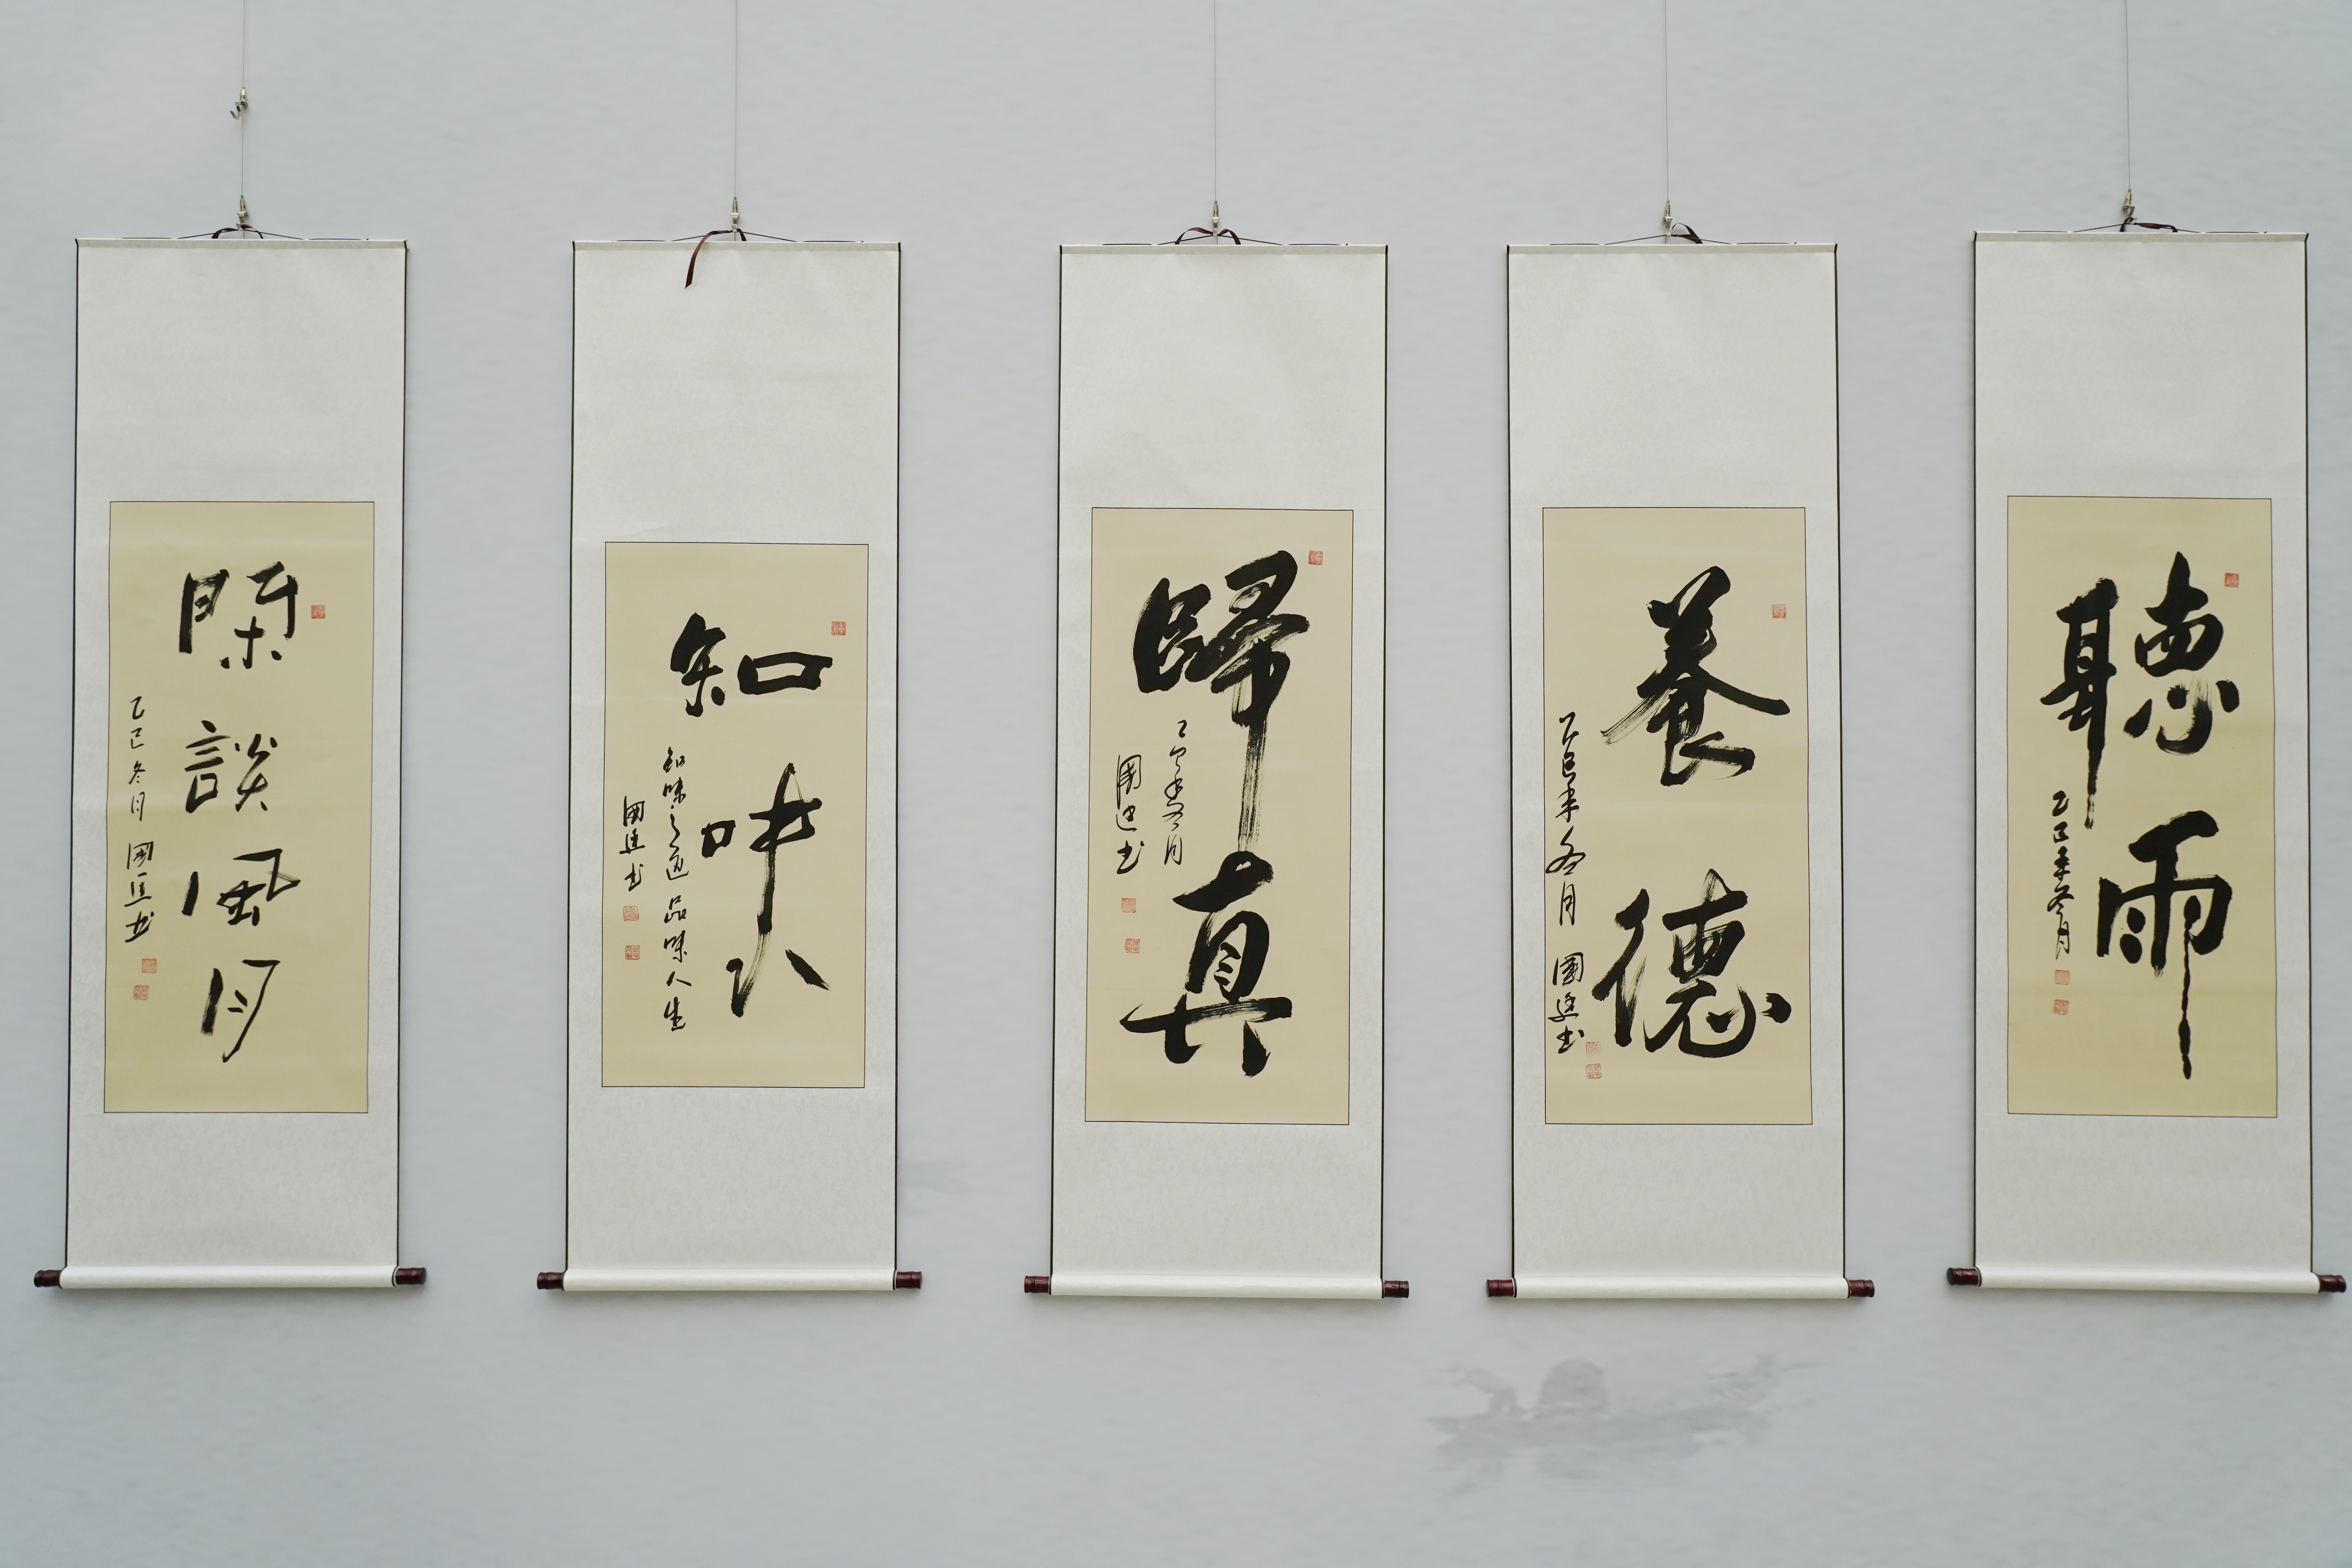 閑談風月
乙巳冬月 國庭书
知味
知味之道 品味人生
國庭书
歸真
乙巳年冬月
國庭书
養德
乙巳年冬月 國庭书
聽雨
乙巳年冬月